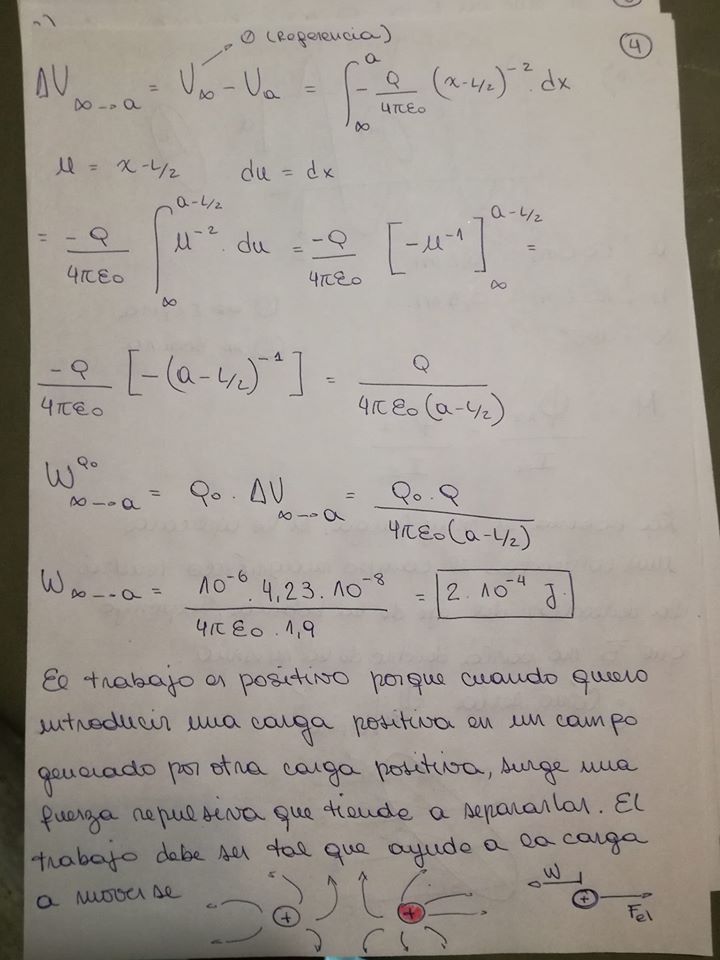 ④
∅ (Referencia)
ΔU∞→a = U∞ - Ua = ∫∞^a - Q/4πε0 (x-L/2)^-2 . dx
u = x-L/2    du = dx
= -Q/4πε0 ∫∞^(a-L/2) u^-2 . du = -Q/4πε0 [-u^-1]∞^(a-L/2) =
-Q/4πε0 [-(a-L/2)^-1] = Q/4πε0(a-L/2)
W^q0 ∞→a = Q0 . ΔU∞→a = Q0.Q/4πε0(a-L/2)
W∞→a = 10^-6 . 4,23 . 10^-8/4πε0 . 1,9 = 2 . 10^-4 J.
El trabajo es positivo porque cuando quiero
introducir una carga positiva en un campo
generado por otra carga positiva, surge una
fuerza repulsiva que tiende a separarlas. El
trabajo debe ser tal que ayude a la carga
a moverse
W
+ + +
Fel